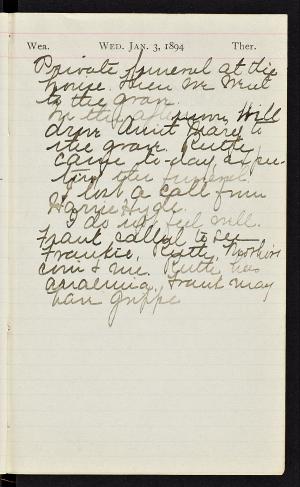 Wea. WED. JAN. 3, 1894 Ther.
Private funeral at the
house. Then we went
to the grave.
In the afternoon Will
drove Aunt Mary to
the grave. Ruth
came to-day expec-
ting the funeral.
I lost a call from
Hyde.
I do not feel well.
Frank called to see
Frankie, Ruth,
+ me. Ruth has
anaemia. Frank may
have grippe